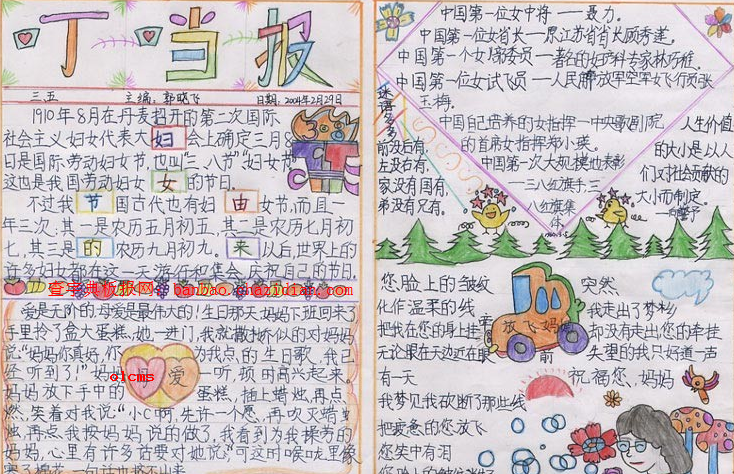 叮当报
三、五 主编: 郭晓飞 日期: 2004年2月29日
1910年8月在丹麦召开的第二次国际
社会主义妇女代表大会上确定三月
日是国际劳动妇女节,也叫“三八节”妇女节
这也是我国劳动妇女的节日。
妇女节的由来
不过我国古代也有妇女节,而且一
年三次:其一是农历五月初五,其二是农历七月初
七,其三是农历九月初九。以后世界上的
许多妇女都在这一天游行和集会,庆祝自己的节日.
查字典板报网 banbao.chazidian.com
爱是无价的,母爱是最伟大的!生日那天,妈妈下班回来了
手里拎了盒大蛋糕,她一进门,我就撒娇似的对妈妈
说:“妈妈你真好,你为我点的生日歌,我已
经听到了!”妈妈一听,顿时高兴起来。
爱
dlcms
妈妈放下手中的蛋糕,插上蜡烛,再点
燃,笑着对我说:“小C啊,先许一个愿,再吹灭蜡
烛,再点我按妈妈说的做了,我看到为我操劳的
妈妈,心里有许多话要对她说,可这时喉咙里像
中国第一位女中将——聂力。
中国第一位女省长——原江苏省省长顾秀莲。
中国第一个女1级委员——著名的妇产科专家林巧稚。
中国第一位女试飞员——人民解放军空军女飞行员张
玉梅。
中国自己培养的女指挥——中央歌剧院
的首席女指挥郑小瑛。
中国第一次大规模也表彰
——三八红旗手,三
八红旗集
体。
谜语多多
前没右有,
左没右有,
家没有国有,
弟没有兄有。
人生价值
的大小是以人
们对社会贡献的
大小而制定。
——向警予
您脸上的皱纹
化作温柔的线
把我在您的身上挂牵
无论跟在天边近在眼前
有一天
我梦见我砍断了那些线
把疲惫的您放飞
您笑中有泪
放飞妈妈
突然,
我走出了梦乡
却没有走出您的牵挂
失望的我只好道一声
祝福您、妈妈